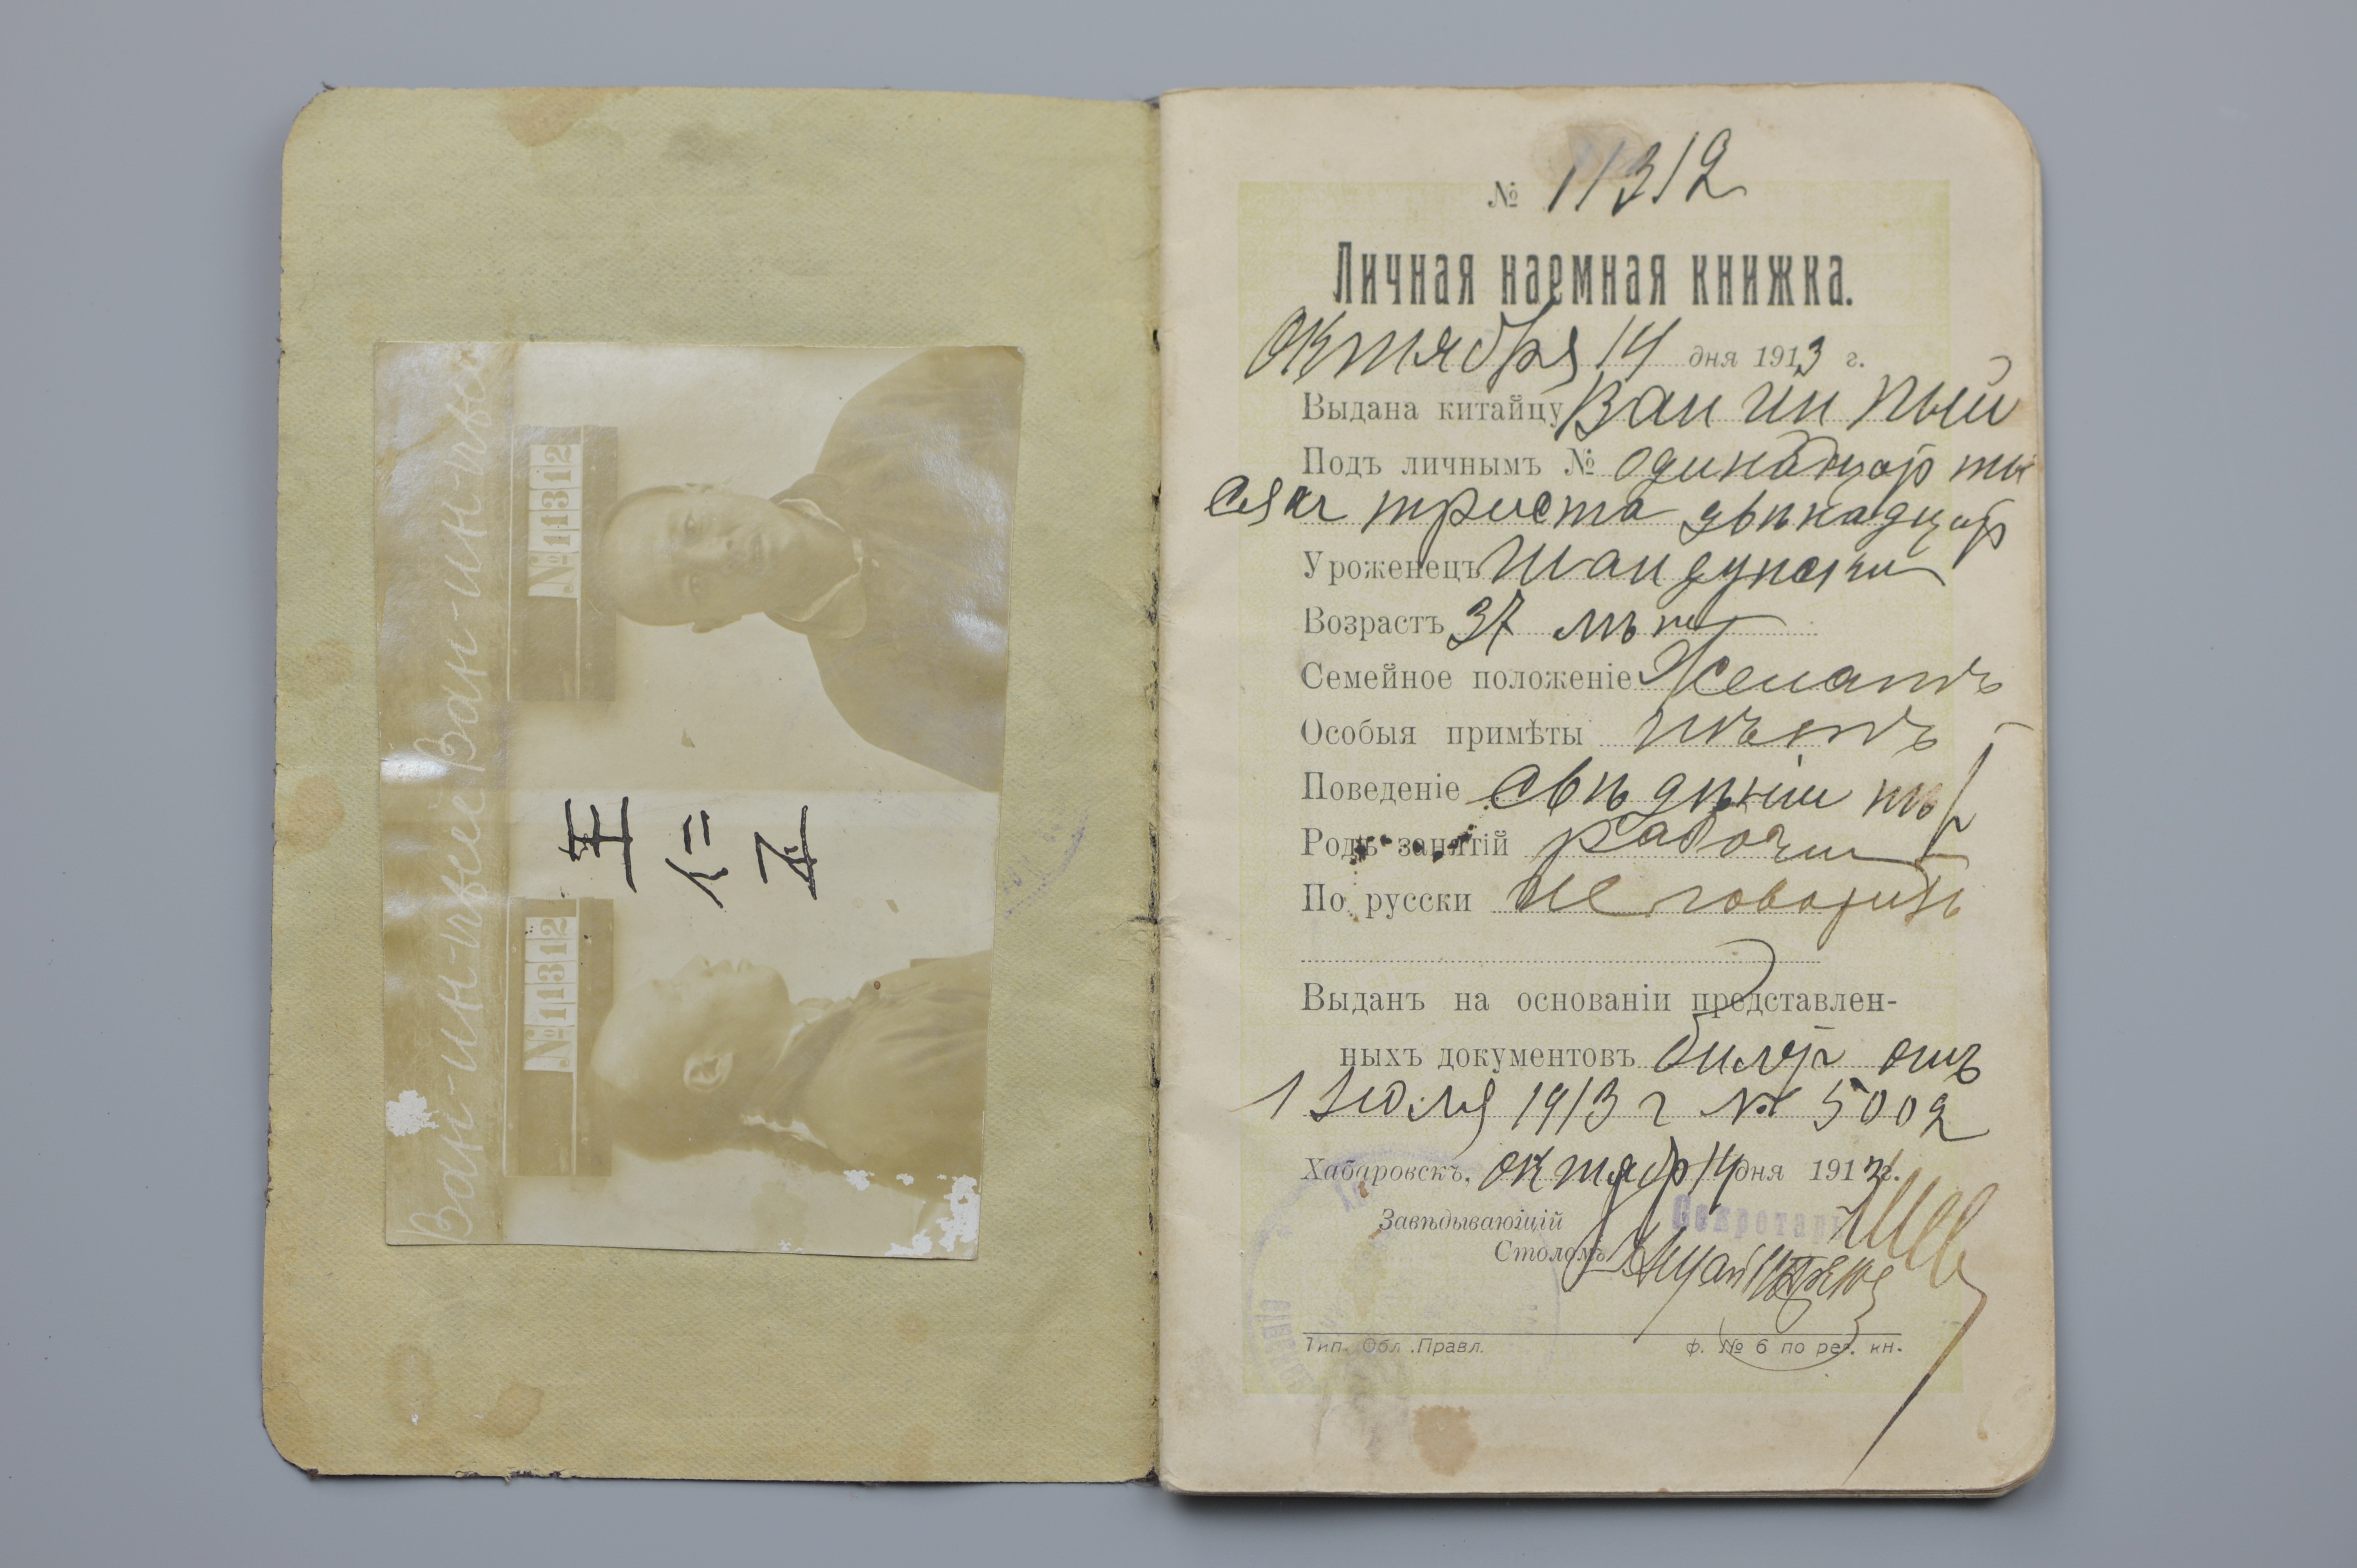 Ван-ин-пьей Ван-ин-пье
№11312
№11312
王
仁
№ 11312
Личная наемная книжка.
Октября 14 дня 1913 г.
Выдана китайцу Ван Ин Пый
Подъ личнымъ № одинадцат ты
сяч триста двѣнадцат
Уроженецъ Шандунскій
Возрастъ 37 лѣт
Семейное положеніе Женатъ
Особыя примѣты нѣтъ
Поведеніе свѣдѣній нѣт
Родъ занятій рабочій
По русски не говоритъ
Выданъ на основаніи представлен-
ныхъ документовъ билет отъ
1 Іюля 1913 г № 5002
Хабаровскъ, октября 14 дня 1913 г.
Завѣдывающій
Секретарь
Столомъ
Тип. Обл. Правл. ф. № 6 по рег. кн.